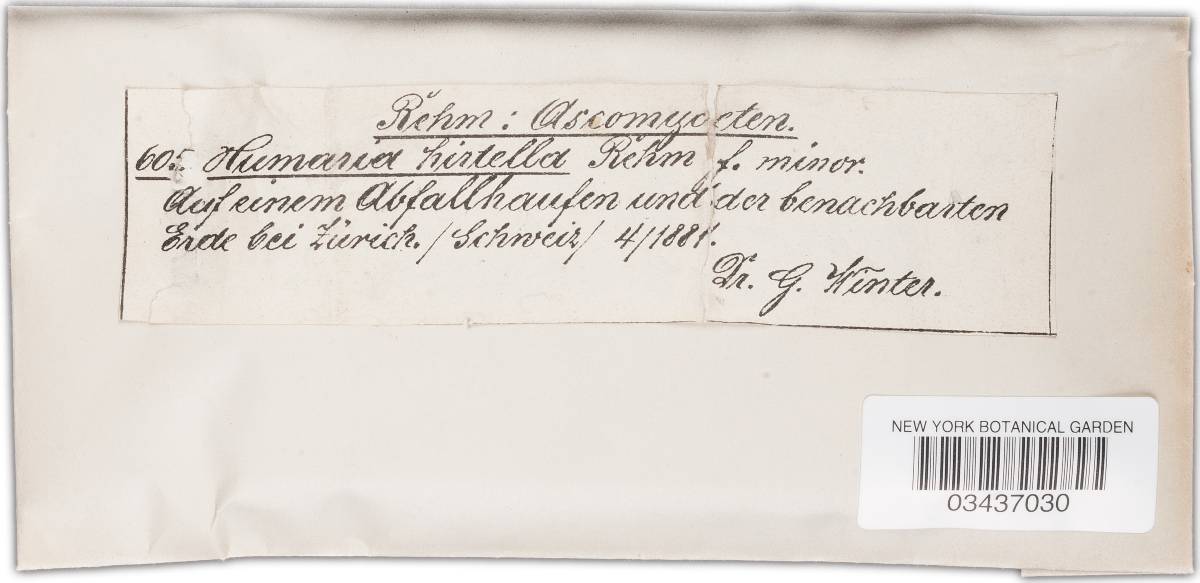 Rehm: Ascomyceten.
605 Humaria hirtella Rehm f. minor.
Auf einem Abfallhaufen und der benachbarten
Erde bei Zürich. /Schweiz/ 4/1881.
Dr. G. Winter.
NEW YORK BOTANICAL GARDEN
03437030